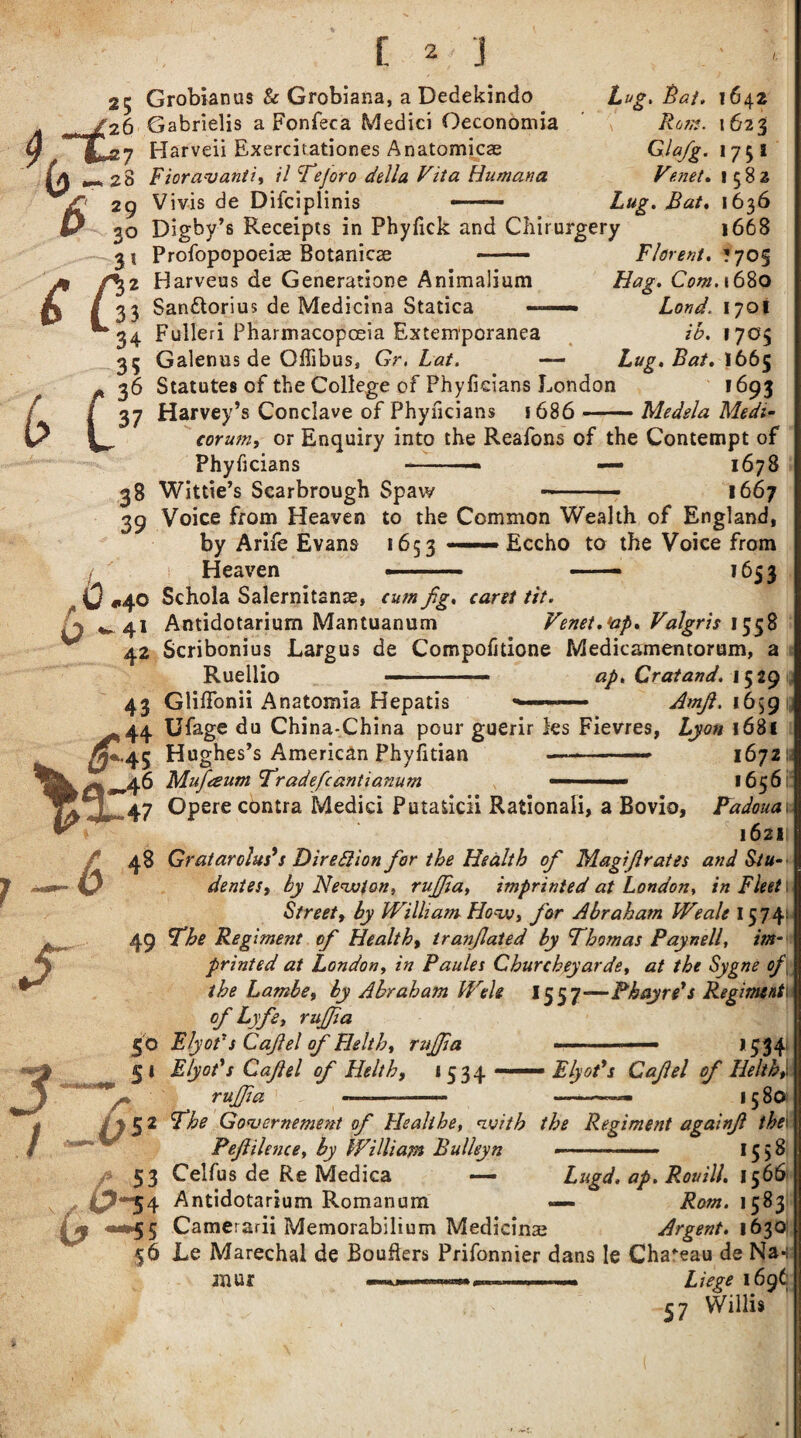 [ 2 ]
25 Grobianus & Grobiana, a Dedekindo Lug. Bat. 1642
26 Gabrielis a Fonſeca Medici Oeconomia Rom. 1623
27 Harveii Exercitationes Anatomicæ Glaſg. 1751
28 Fioravanti, il Teſoro della Vita Humana Venet. 1582
29 Vivis de Diſciplinis —— Lug. Bat. 1636
30 Digby's Receipts in Phyſick and Chirurgery 1668
31 Proſopopoeiæ Botanicæ —— Florent. 1705
32 Harveus de Generatione Animalium Hag. Com. 1680
33 Sanctorius de Medicina Statica —— Lond. 1701
34 Fulleri Pharmacopœia Extemporanea ib. 1705
35 Galenus de Oſſibus, Gr. Lat. — Lug. Bat. 1665
36 Statutes of the College of Phyſicians London 1693
37 Harvey's Conclave of Phyſicians 1686 —— Medela Medi-
corum, or Enquiry into the Reaſons of the Contempt of
Phyſicians —— — 1678
38 Wittie's Scarbrough Spaw —— 1667
39 Voice from Heaven to the Common Wealth of England,
by Ariſe Evans 1653 —— Eccho to the Voice from
Heaven —— —— 1653
40 Schola Salernitanæ, cum fig. caret tit.
41 Antidotarium Mantuanum Venet. ap. Valgris 1558
42 Scribonius Largus de Compoſitione Medicamentorum, a
Ruellio —— ap. Cratand. 1529
43 Gliſſonii Anatomia Hepatis —— Amſt. 1659
44 Uſage du China-China pour guerir les Fievres, Lyon 1681
45 Hughes's American Phyſitian —— 1672
46 Muſæum Tradeſcantianum —— 1656
47 Opere contra Medici Putaticii Rationali, a Bovio, Padoua
1621
48 Gratarolus's Direction for the Health of Magiſtrates and Stu-
dentes, by Newton, ruſſia, imprinted at London, in Fleet
Street, by William How, for Abraham Weale 1574
49 The Regiment of Health, tranſlated by Thomas Paynell, im-
printed at London, in Paules Churcheyarde, at the Sygne of
the Lambe, by Abraham Wele 1557 — Phayre's Regiment
of Lyfe, ruſſia
50 Elyot's Caſtel of Helth, ruſſia —— 1534
51 Elyot's Caſtel of Helth, 1534 —— Elyot's Caſtel of Helth,
ruſſia —— —— 1580
52 The Governement of Healthe, with the Regiment againſt the
Peſtilence, by William Bulleyn —— 1558
53 Celſus de Re Medica — Lugd. ap. Rouill. 1566
54 Antidotarium Romanum — Rom. 1583
55 Camerarii Memorabilium Medicinæ Argent. 1630
56 Le Marechal de Bouflers Priſonnier dans le Chateau de Na-
mur —— —— Liege 1696
57 Willis